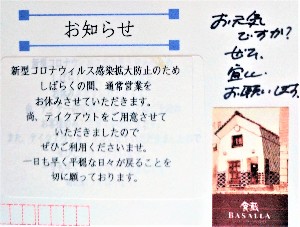 お知らせ
新型コロナウィルス感染拡大防止のため
しばらくの間、通常営業を
お休みさせていただきます。
尚、テイクアウトをご用意させて
いただきましたので
ぜひご利用くださいませ。
一日も早く平穏な日々が戻ることを
切に願っております。
お元気
ですか？
ぜひ、
宜しく
お願いします。
食蔵
BASALLA